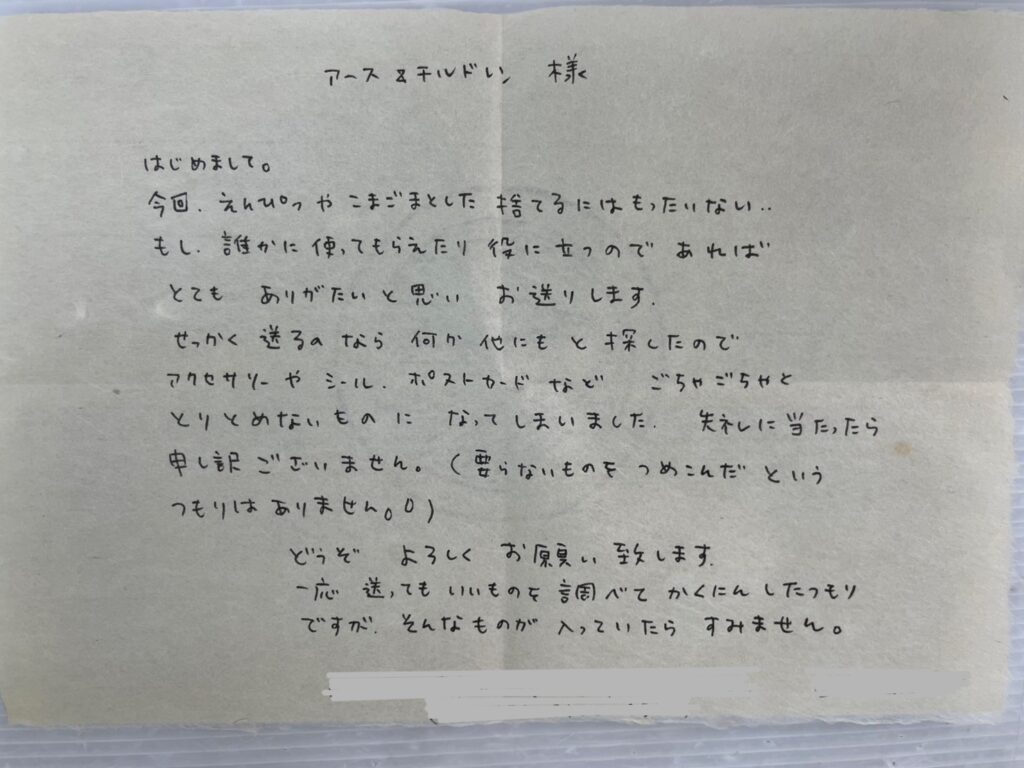 アース&チルドレン 様
はじめまして。
今回、えんぴつや こまごまとした 捨てるにはもったいない..
もし、誰かに使ってもらえたり 役に立つのであれば
とても ありがたいと思い お送りします.
せっかく 送るのなら 何か 他にもと探したので
アクセサリーや シール、ポストカードなど ごちゃごちゃと
とりとめないものに なってしまいました. 失礼に当たったら
申し訳ございません。(要らないものを つめこんだ という
つもりは ありません。0)
どうぞ よろしく お願い致します.
一応 送ってもいいものを調べて かくにんしたつもり
ですが、そんなものが入っていたら すみません。